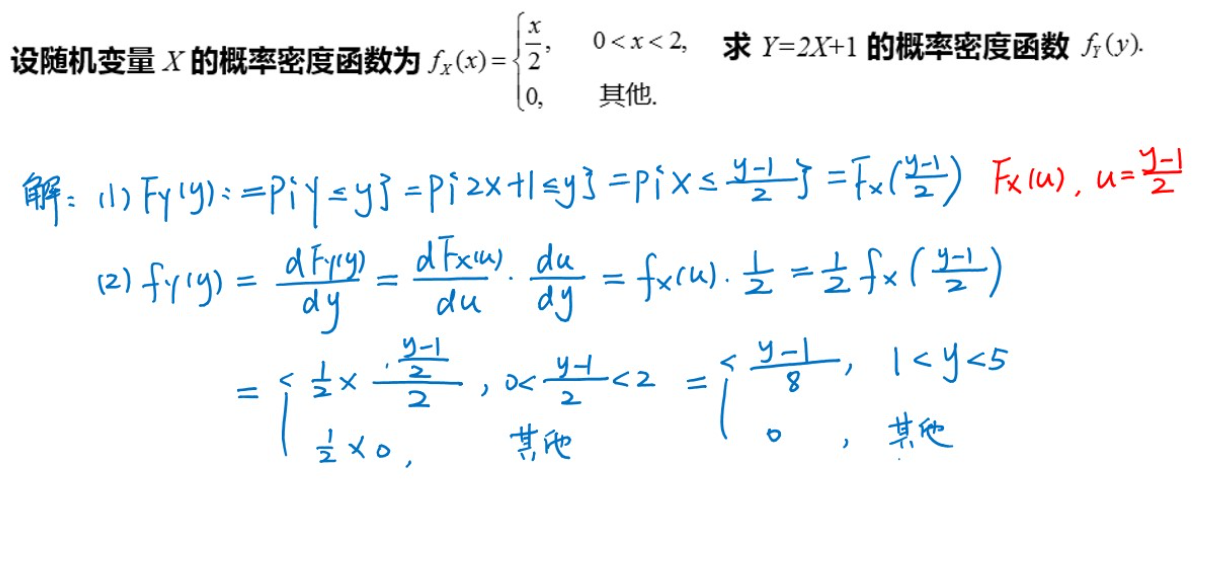 设随机变量 X 的概率密度函数为 f_X(x) = { x/2, 0 < x < 2, 0, 其他. 求 Y=2X+1 的概率密度函数 f_Y(y).
解: (1) F_Y(y) := P{Y ≤ y} = P{2X+1 ≤ y} = P{X ≤ (y-1)/2} = F_X((y-1)/2) F_X(u), u = (y-1)/2
(2) f_Y(y) = dF_Y(y)/dy = dF_X(u)/du · du/dy = f_X(u) · 1/2 = 1/2 f_X((y-1)/2)
= { 1/2 × ((y-1)/2)/2, 0 < (y-1)/2 < 2 = { (y-1)/8, 1 < y < 5
1/2 × 0, 其他 0, 其他